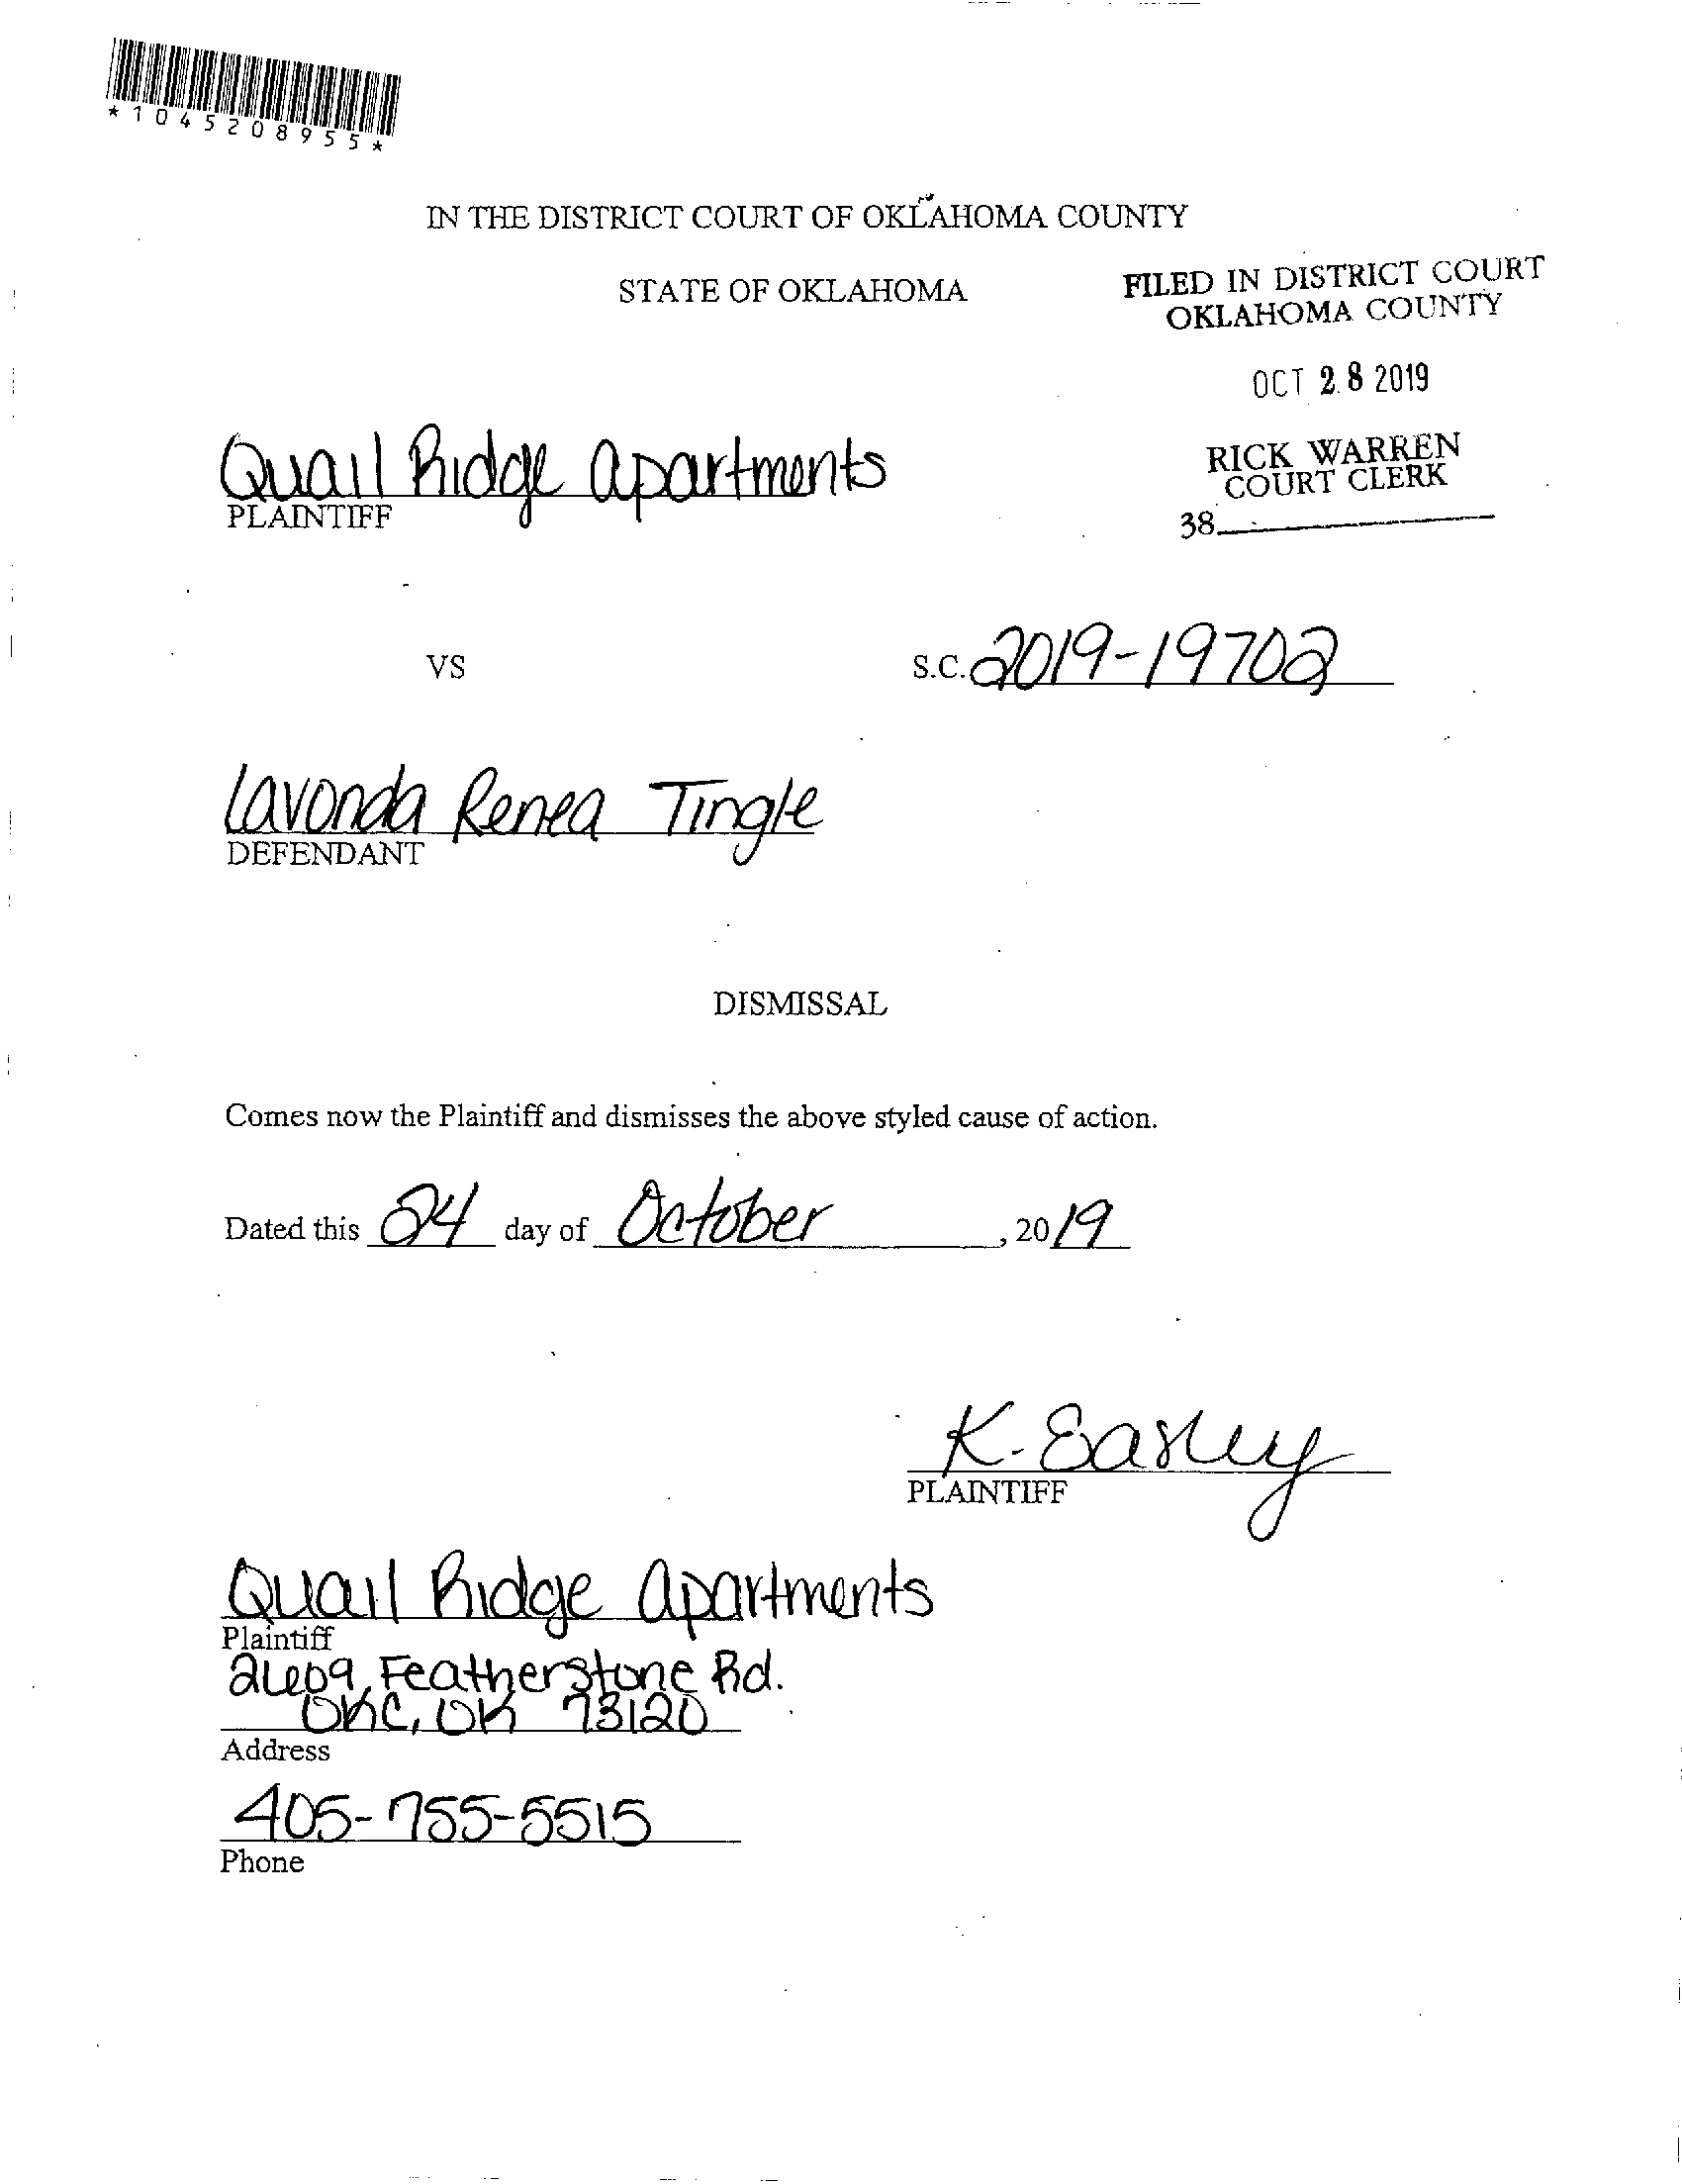 *1045208955*
IN THE DISTRICT COURT OF OKLAHOMA COUNTY
STATE OF OKLAHOMA
FILED IN DISTRICT COURT
OKLAHOMA COUNTY
OCT 28 2019
RICK WARREN
COURT CLERK
38
Quail Ridge Apartments
PLAINTIFF
VS
S.C. 2019-19702
Lavonda Renea Tingle
DEFENDANT
DISMISSAL
Comes now the Plaintiff and dismisses the above styled cause of action.
Dated this 24 day of October, 2019
K. Easley
PLAINTIFF
Quail Ridge Apartments
Plaintiff
2609 Featherstone Rd.
OKC, OK 73120
Address
405-755-5515
Phone